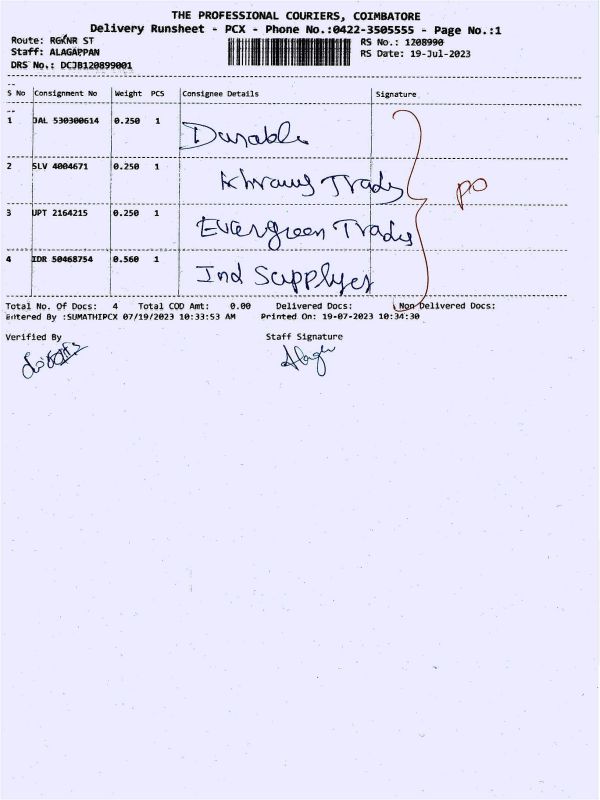 THE PROFESSIONAL COURIERS, COIMBATORE
Delivery Runsheet - PCX - Phone No.:0422-3505555 - Page No.:1
Route: RGKNR ST
RS No.: 1208990
Staff: ALAGAPPAN
RS Date: 19-Jul-2023
DRS No.: DCJB120899001
S No Consignment No Weight PCS Consignee Details Signature
1 JAL 530300614 0.250 1 Durable
2 SLV 4004671 0.250 1 Trady
3 UPT 2164215 0.250 1 Evergreen Trady
4 IDR 50468754 0.560 1 Ind Supplyer
PO
Total No. Of Docs: 4 Total COD Amt: 0.00 Delivered Docs: Non Delivered Docs:
Entered By :SUMATHIPCX 07/19/2023 10:33:53 AM Printed On: 19-07-2023 10:34:30
Verified By Staff Signature